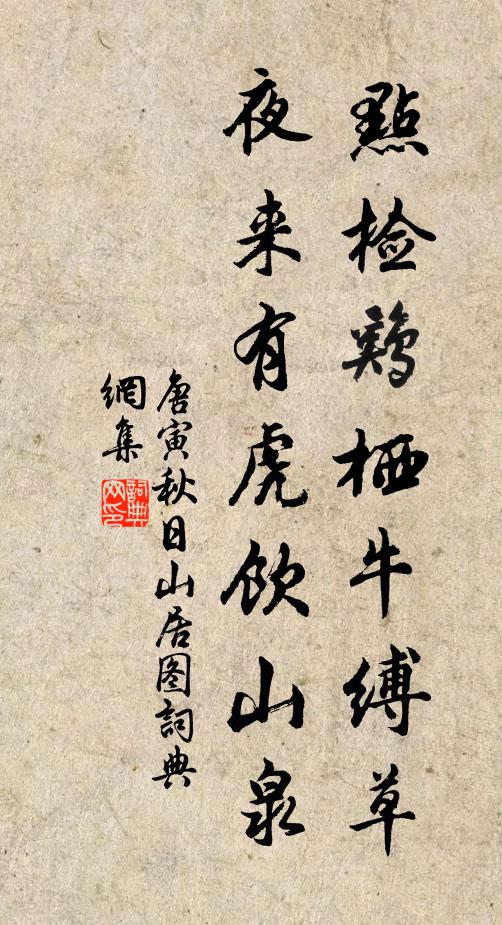 點檢鷄栖牛縛草
夜来有虎飲山泉
唐寅秋日山居图詞典
網集
詞典
网印